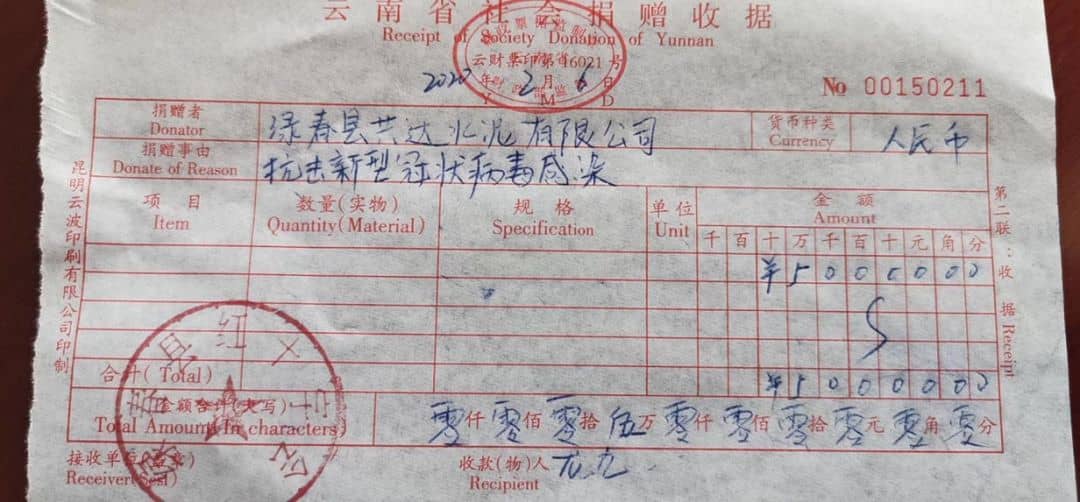 云南省社会捐赠收据
Receipt of Society Donation of Yunnan
云财票印第16021号
2020年2月6日
Y M D
No 00150211
捐赠者 绿春县共达水泥有限公司 货币种类 人民币
Donator Currency
捐赠事由 抗击新型冠状病毒感染
Donate of Reason
项目 数量(实物) 规格 单位 金额
Item Quantity(Material) Specification Unit Amount
千 百 十 万 千 百 十 元 角 分
¥ 5 0 0 0 0 0 0
合计(Total) ¥ 5 0 0 0 0 0 0
金额合计(大写) 零仟零佰零拾伍万零仟零佰零拾零元零角零分
Total Amount(In characters)
接收单位(盖章) 收款(物)人
Receiver(Sesl) Recipient
昆明云波印刷有限公司印制
第二联:收据 Receipt
春县红十字会